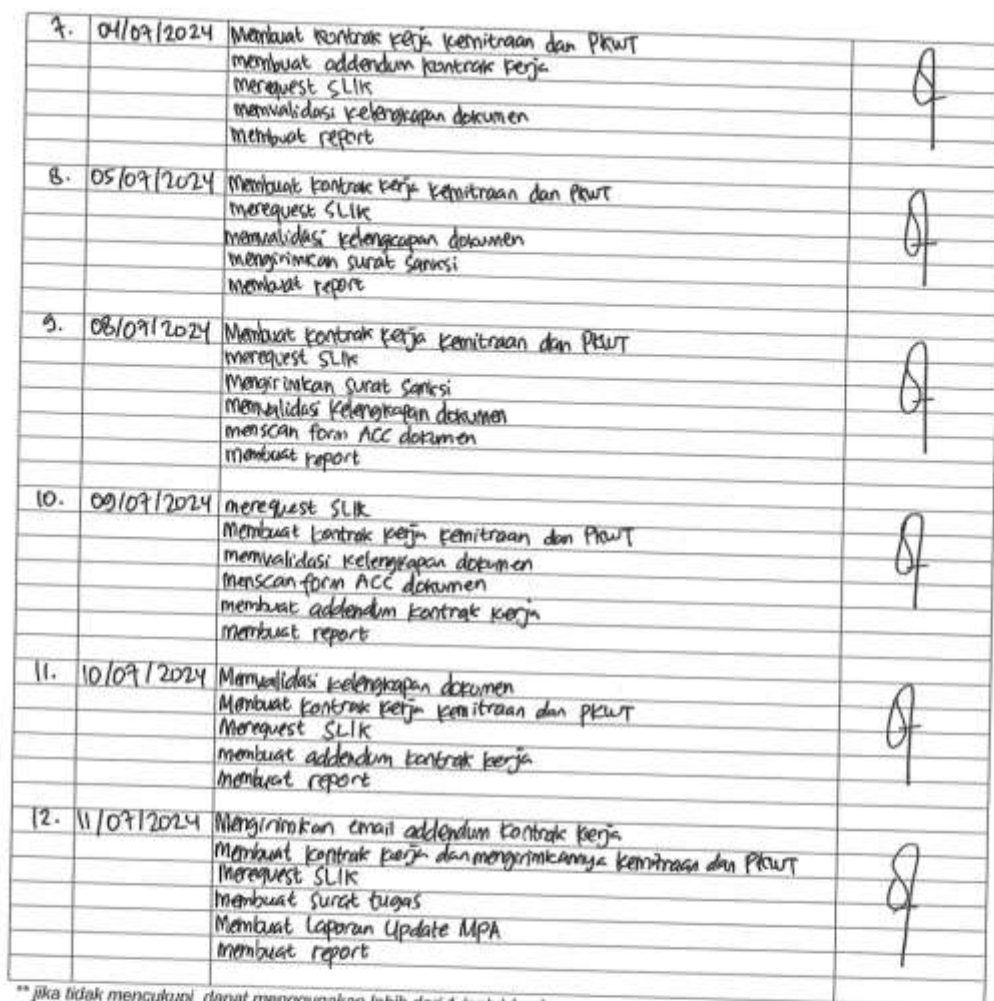 7. 04/07/2024 Membuat kontrak kerja kemitraan dan PKWT
membuat addendum kontrak kerja
merequest SLIK
memvalidasi kelengkapan dokumen
membuat report
8. 05/07/2024 Membuat kontrak kerja kemitraan dan PKWT
merequest SLIK
memvalidasi kelengkapan dokumen
mengirimkan surat sanksi
membuat report
9. 08/07/2024 Membuat kontrak kerja kemitraan dan PKWT
merequest SLIK
Mengirimkan surat sanksi
memvalidasi kelengkapan dokumen
menscan form ACC dokumen
membuat report
10. 09/07/2024 merequest SLIK
Membuat kontrak kerja kemitraan dan PKWT
memvalidasi kelengkapan dokumen
menscan form ACC dokumen
membuat addendum kontrak kerja
membuat report
11. 10/07/2024 Memvalidasi kelengkapan dokumen
Membuat kontrak kerja kemitraan dan PKWT
Merequest SLIK
membuat addendum kontrak kerja
membuat report
12. 11/07/2024 Mengirimkan email addendum kontrak kerja
Membuat kontrak kerja dan mengirimkannya kemitraan dan PKWT
Merequest SLIK
membuat surat tugas
Membuat Laporan Update MPA
membuat report
** jika tidak mencukupi, dapat menggunakan lebih dari